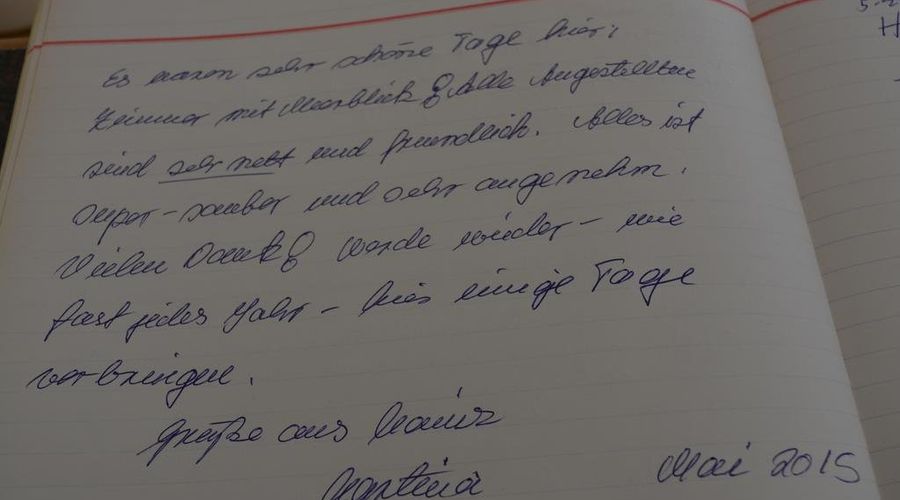 Es waren sehr schöne Tage hier,
Zimmer mit Meerblick! Alle Angestellten
sind sehr nett und freundlich. Alles ist
super-sauber und sehr angenehm.
Vielen Dank! Werde wieder - wie
fast jedes Jahr - hier einige Tage
verbringen.
Grüße aus Mainz
Martina
Mai 2015